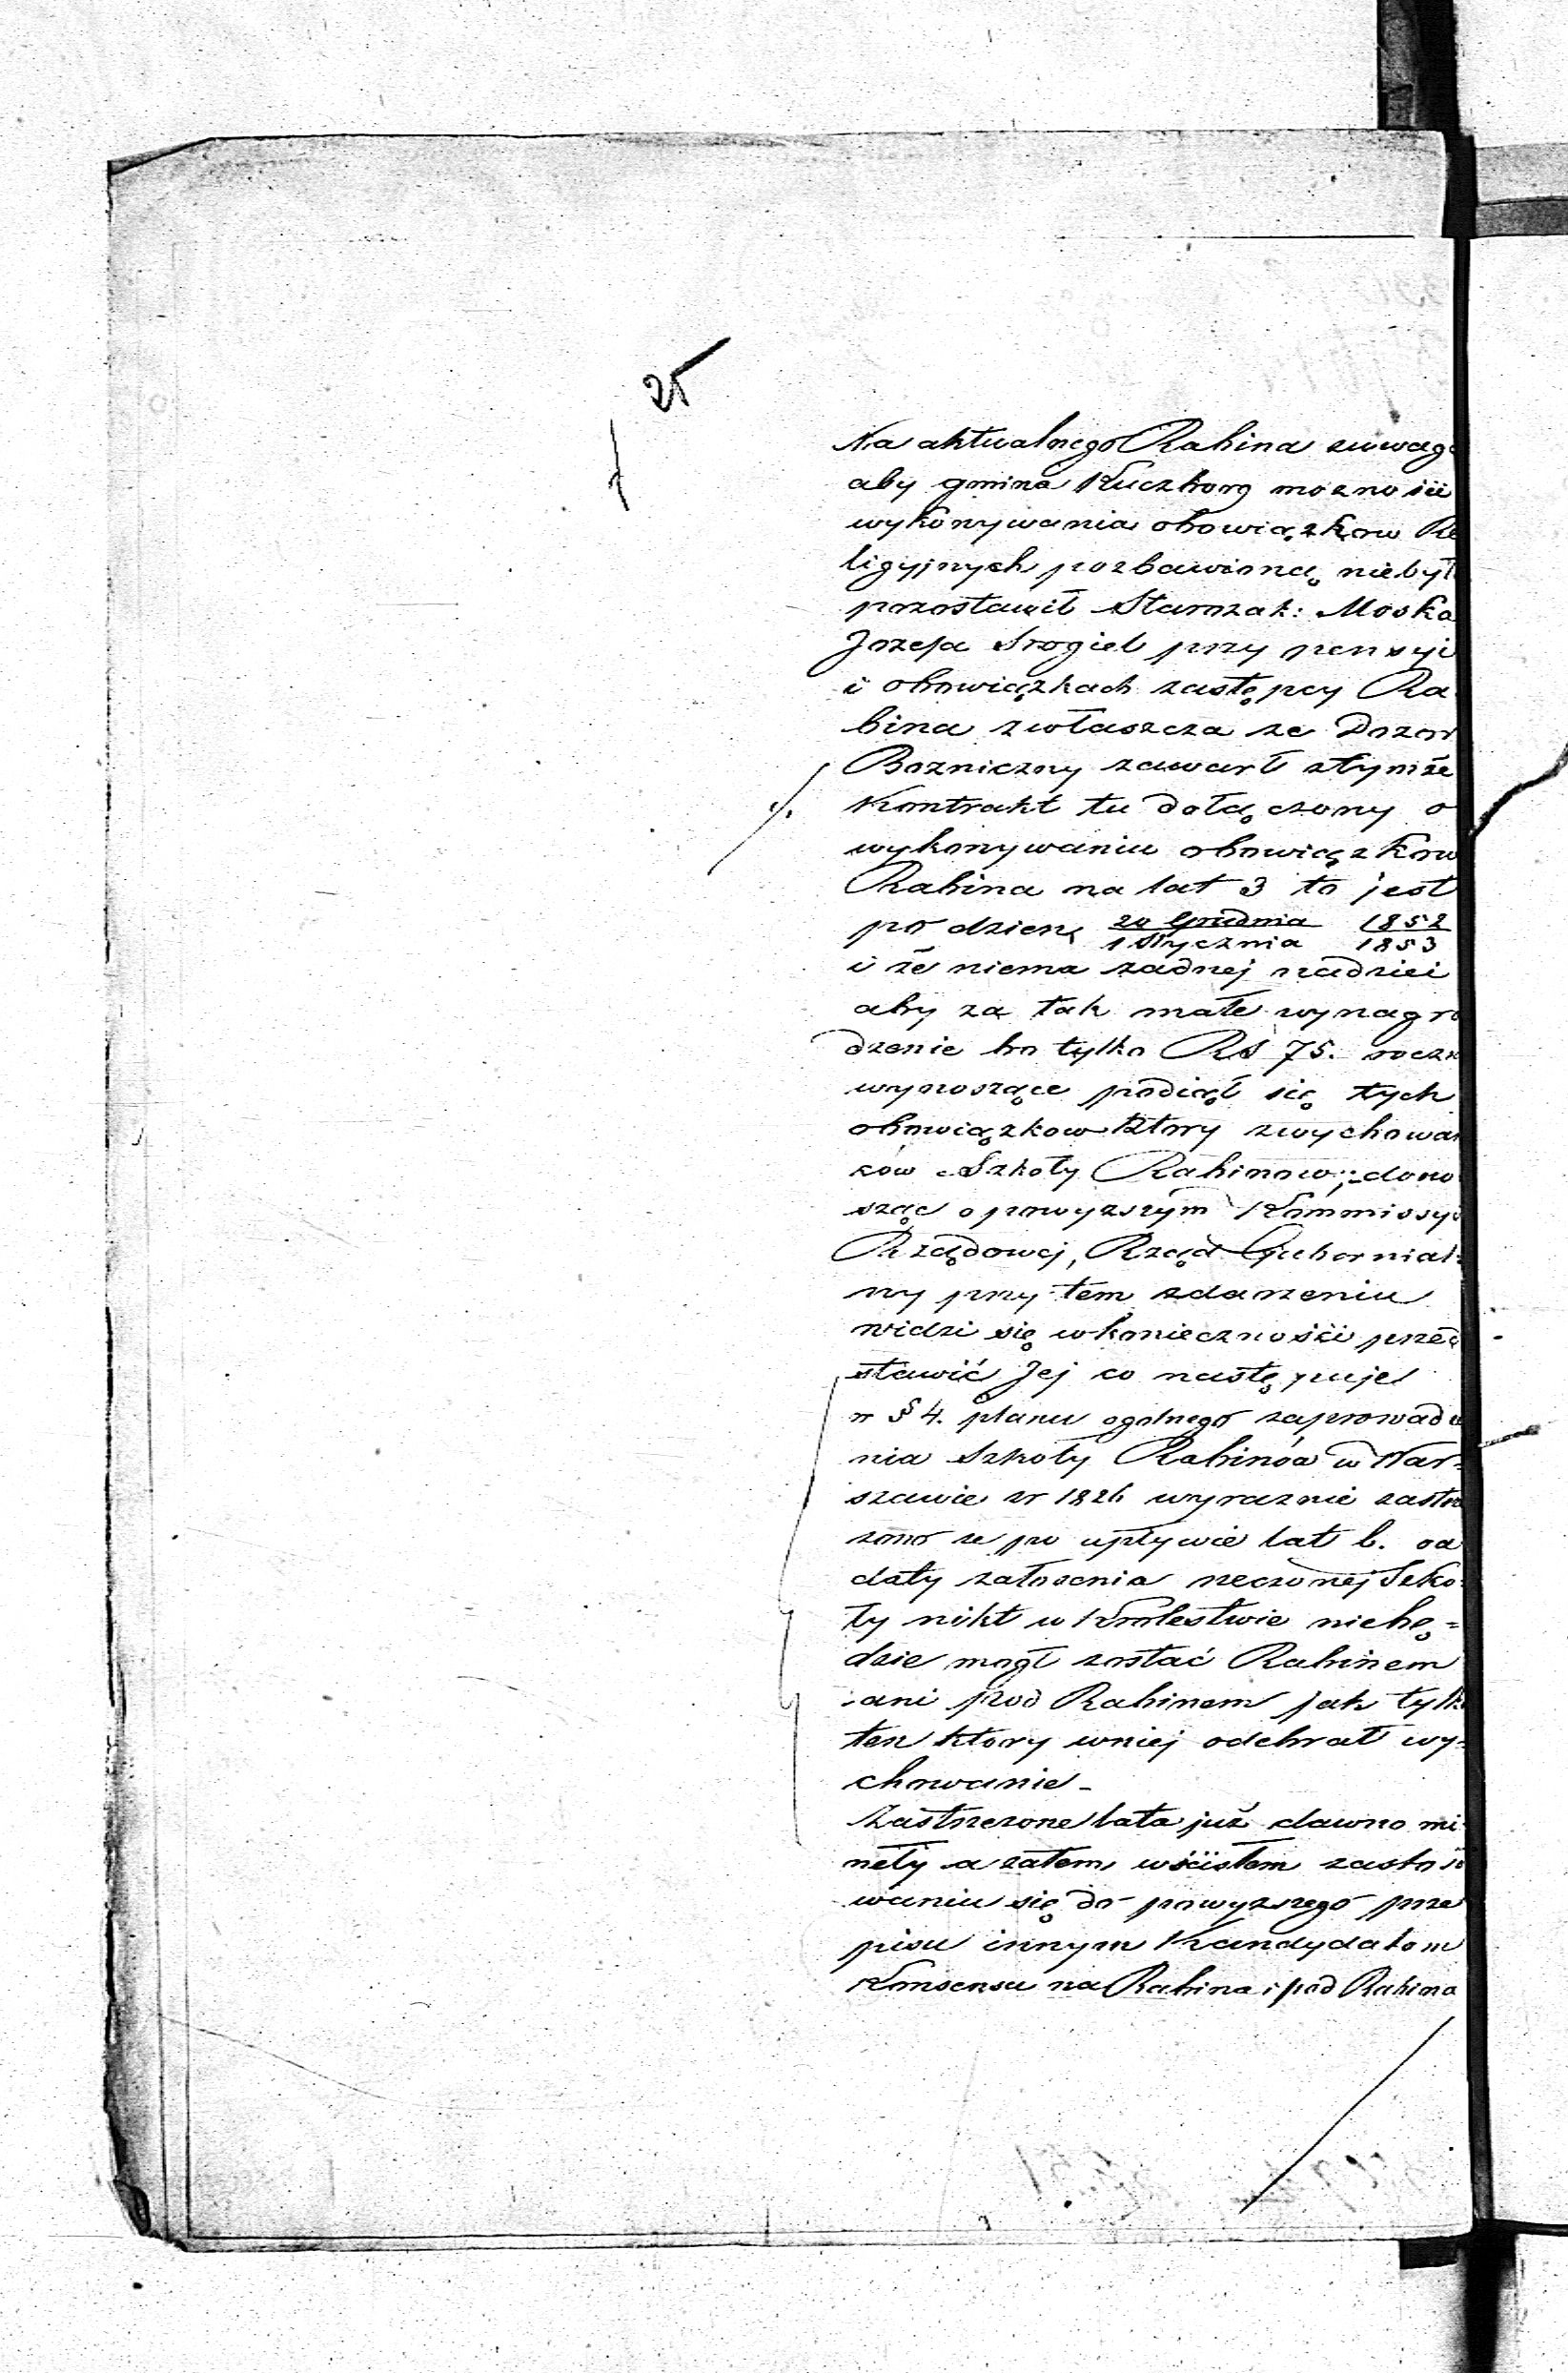 25
Na aktualnego Rabina zuwagi
aby gmina Kuczborg moznosci
wykonywania obowiązkow Re
ligyjnych pozbawioną niebył
pozostawił Starozak: Moska
Jozefa Srogiel przy pensyi
i obowiązkach zastępcy Ra
bina zwłaszcza ze Dozor
Bozniczny zawarł ztymże
Kontrakt tu dołączony o
wykonywaniu obowiązkow
Rabina na lat 3 to jest
po dzien 20 Grudnia 1852
1 Stycznia 1853
i że niema zadnej nadziei
aby za tak małe wynagro
dzenie bo tylko RS 75. roczn
wynoszące podiął się tych
obowiązkow ktory zwychowań
ków Szkoły Rabinow; dono
sząc o powyzszym Kommissyi
Rządowej, Rząd Gubernial=
ny przy tem zdarzeniu
widzi się wkonieczności przed
stawić Jej co następuje
w § 4. planu ogolnego zaprowadze
nia Szkoły Rabinów w War=
szawie w 1826 wyraznie zastrze
zono ze po upływie lat 6. od
daty założenia rzeczonej Szko=
ły nikt w Krolestwie niebę=
dzie mogł zostać Rabinem
ani pod Rabinem jak tylko
ten ktory wniej odebrał wy=
chowanie -
Zastrzezone lata już dawno mi
nęły a zatem wścisłem zastoso
waniu się do powyzszego prze
pisu innym Kandydatom
Konsensu na Rabina i pod Rabina